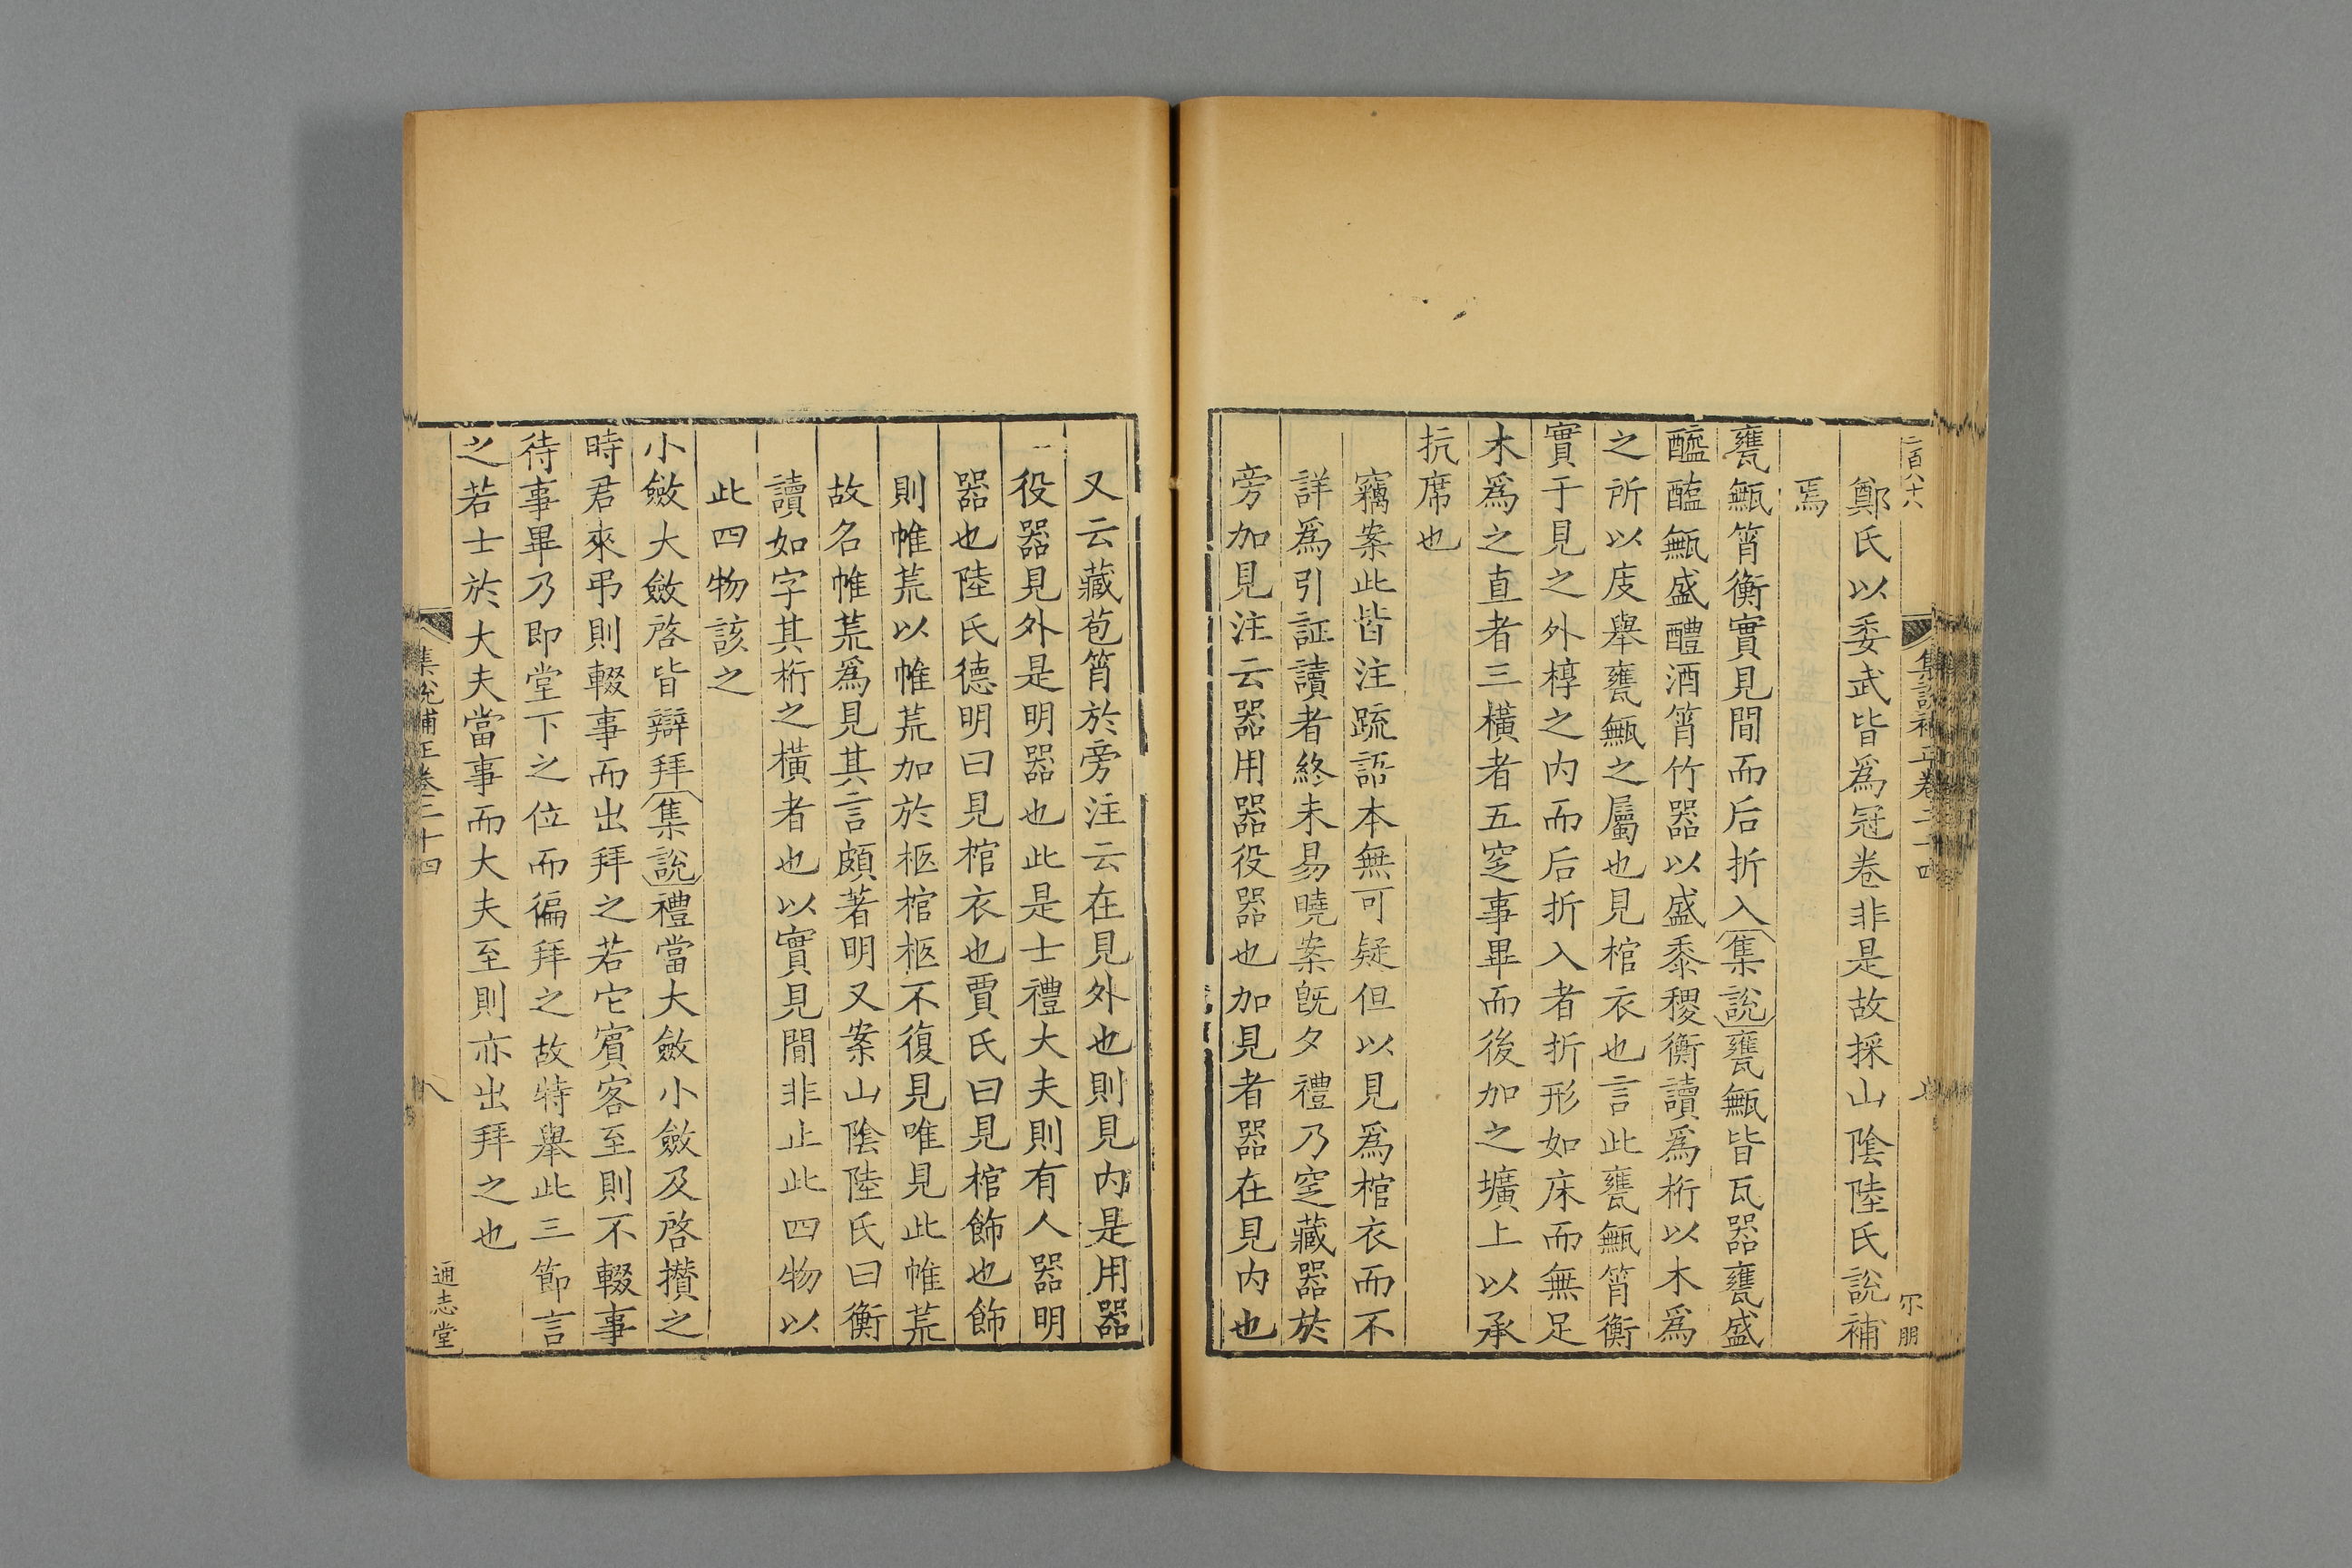 二百八十八
鄭氏以委武皆爲冠卷非是故採山隂陸氏說補
焉
甕甒筲衡實見間而后折入集說甕甒皆瓦器甕盛
醯醢甒盛醴酒筲竹器以盛黍稷衡讀爲桁以木爲
之所以庋舉甕甒之屬也見棺衣也言此甕甒筲衡
實于見之外椁之内而后折入者折形如床而無足
木爲之直者三橫者五窆事畢而後加之壙上以承
抗席也
竊案此皆注疏語本無可疑但以見爲棺衣而不
詳爲引証讀者終未易曉案旣夕禮乃窆藏器於
旁加見注云器用器役器也加見者器在見内也
又云藏苞筲於旁注云在見外也則見内是用器
役器見外是明器也此是士禮大夫則有人器明
器也陸氏德明曰見棺衣也賈氏曰見棺飾也飾
則帷荒以帷荒加於柩棺柩不復見唯見此帷荒
故名帷荒爲見其言頗著明又案山隂陸氏曰衡
讀如字其桁之橫者也以實見間非止此四物以
此四物該之
小斂大斂啓皆辯拜集說禮當大斂小斂及啓攢之
時君來弔則輟事而出拜之若它賓客至則不輟事
待事畢乃即堂下之位而徧拜之故特舉此三節言
之若士於大夫當事而大夫至則亦出拜之也
集說補正卷二十四
八
通志堂